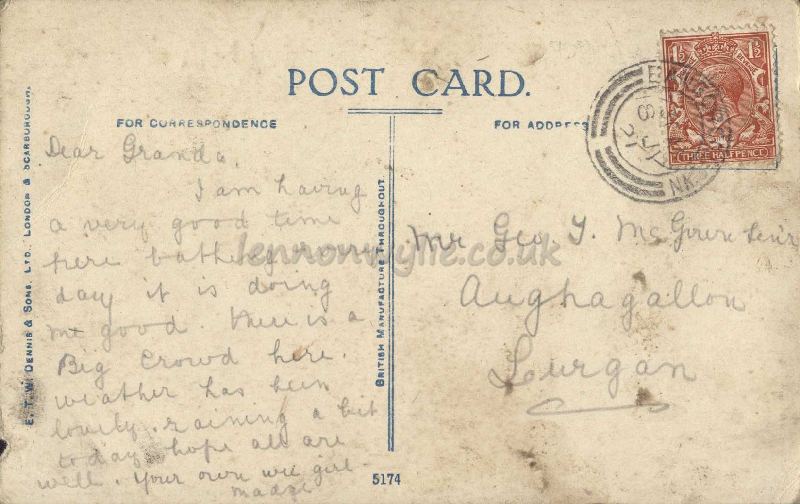 POST CARD.
FOR CORRESPONDENCE
FOR ADDRESS
E. T. W. DENNIS & SONS, LTD., LONDON & SCARBOROUGH.
BRITISH MANUFACTURE THROUGHOUT.
Dear Granda,
I am having
a very good time
here bathing
day it is doing
me good. there is a
Big Crowd here.
weather has been
lovely. raining a bit
today hope all are
well. Your own wee girl
madge
Mr Geo. Y. McGown Senr
Aughagallon
Lurgan
5174
1½ 1½
THREE HALFPENCE
21
NK
lennonwylie.co.uk